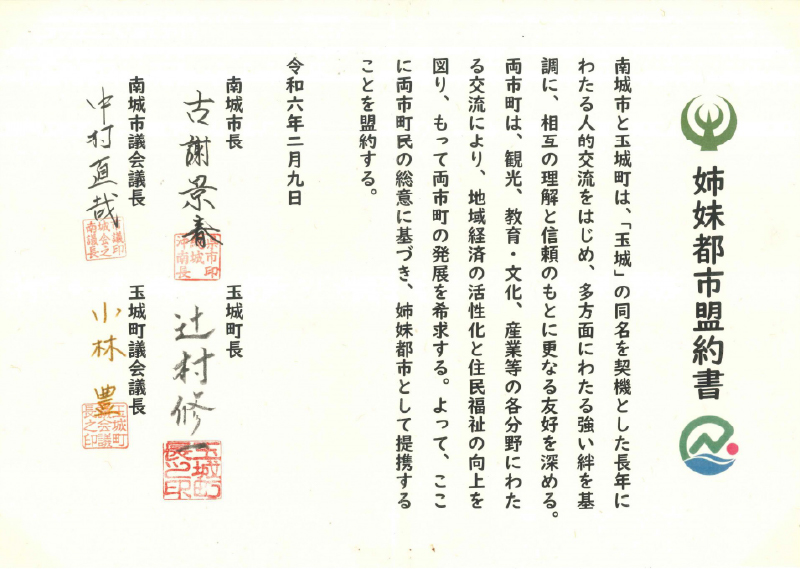 姉妹都市盟約書
南城市と玉城町は、「玉城」の同名を契機とした長年に
わたる人的交流をはじめ、多方面にわたる強い絆を基
調に、相互の理解と信頼のもとに更なる友好を深める。
両市町は、観光、教育・文化、産業等の各分野にわた
る交流により、地域経済の活性化と住民福祉の向上を
図り、もって両市町の発展を希求する。よって、ここ
に両市町民の総意に基づき、姉妹都市として提携する
ことを盟約する。
令和六年二月九日
南城市長
古謝景春
玉城町長
辻村修一
玉城町長之印
南城市議会議長
中村直哉
玉城町議会議長
小林豊
玉城町議会議長之印